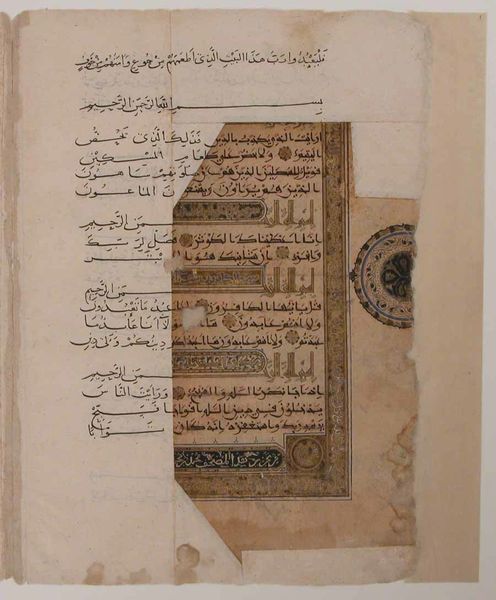 فليعبدوا رب هذا البيت الذي أطعمهم من جوع وآمنهم من خوف
بسم الله الرحمن الرحيم
أرأيت الذي يكذب بالدين فذلك الذي يدع
اليتيم ولا يحض على طعام المسكين
فويل للمصلين الذين هم عن صلاتهم ساهون
الذين هم يراؤن ويمنعون الماعون
من الرحيم
إنا أعطيناك الكوثر فصل لربك
وانحر إن شانئك هو الأبتر
من الرحيم
قل يا أيها الكافرون لا أعبد ما تعبدون
ولا أنتم عابدون ما ولا أنا عابد ما
عبدتم ولا أنتم عابدون ما أعبد لكم دينكم ولي دين
من الرحيم
إذا جاء نصر الله والفتح ورأيت الناس
يدخلون في دين الله أفواجا فسبح
بحمد ربك واستغفره إنه كان توابا